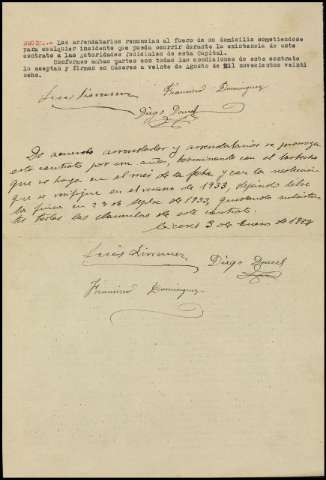 DECI.- Los arrendatarios renuncian al fuero de su domicilio sometiendose
para cualquier incidente que pueda ocurrir durante la existencia de este
contrato a las autoridades judiciales de esta Capital.
Conformes ambas partes con todas las condiciones de este contrato
lo aceptan y firman en Cáceres a veinte de Agosto de mil novecientos veinti
ocho.
Luis Jimenez Francisco Dominguez
Diego
De acuerdo arrendador y arrendatarios se prorroga
este contrato por un año, terminando con el barbecho
que se haga en el mes de la fecha y con la
que se verifique en el verano de 1933, dejando libre
la finca en 29 de Sepbre de 1933, quedando subsisten
tes todas las clausulas de este contrato.
Cáceres 3 de Enero de
Luis Jimenez Diego
Francisco Dominguez